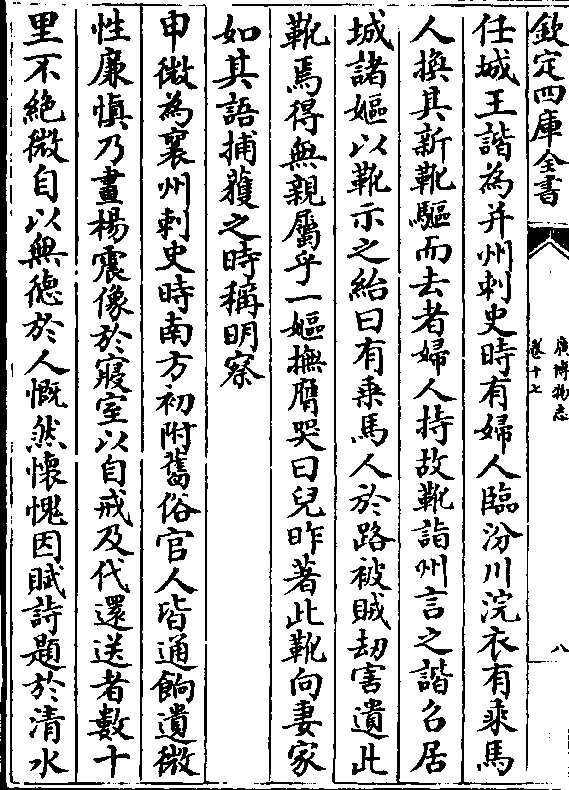 欽定四庫全書
廣博物志
卷十七
八
任城王諧為并州刺史時有婦人臨汾川浣衣有乘馬
人換其新靴驅而去者婦人持故靴詣州言之諧召居
城諸嫗以靴示之紿曰有乘馬人於路被賊刼害遺此
靴焉得無親屬乎一嫗撫膺哭曰兒昨著此靴向妻家
如其語捕獲之時稱明察
申徽為襄州刺史時南方初附舊俗官人皆通餉遺徽
性廉慎乃畫楊震像於寢室以自戒及代還送者數十
里不絶徽自以無德於人慨然懷愧因賦詩題於清水